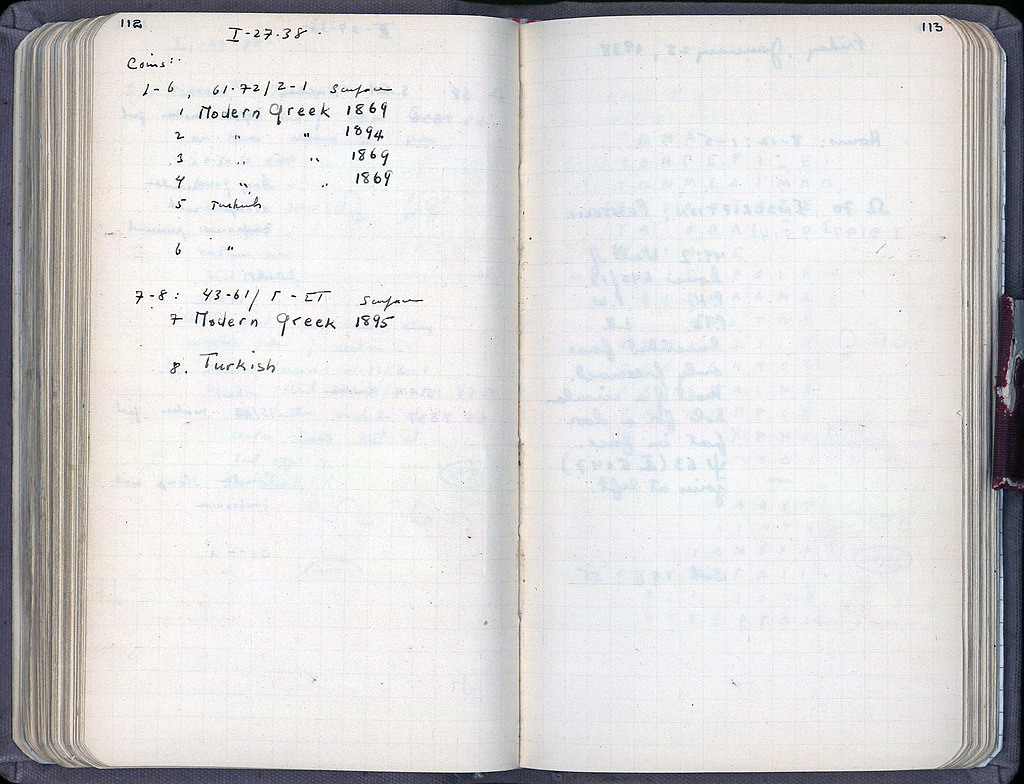 112
I-27-38
Coins:
1-6, 61-72/2-1 Surface
1 Modern Greek 1869
2 " " 1894
3 " " 1869
4 " " 1869
5 Turkish
6 "
7-8: 43-61/ Γ - ΣΤ Surface
7 Modern Greek 1895
8. Turkish
113